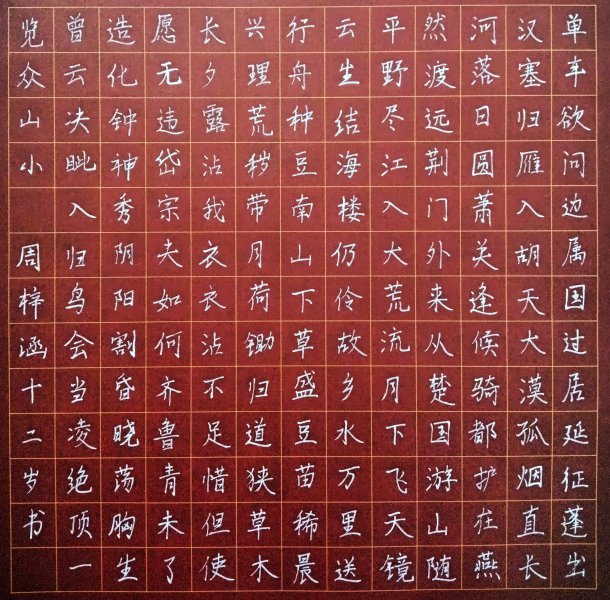 单车欲问边属国过居延征蓬出
汉塞归雁入胡天大漠孤烟直长
河落日圆萧关逢候骑都护在燕
然渡远荆门外来从楚国游山随
平野尽江入大荒流月下飞天镜
云生结海楼仍怜故乡水万里送
行舟种豆南山下草盛豆苗稀晨
兴理荒秽带月荷锄归道狭草木
长夕露沾我衣衣沾不足惜但使
愿无违岱宗夫如何齐鲁青未了
造化钟神秀阴阳割昏晓荡胸生
曾云决眦入归鸟会当凌绝顶一
览众山小 周梓涵十二岁书